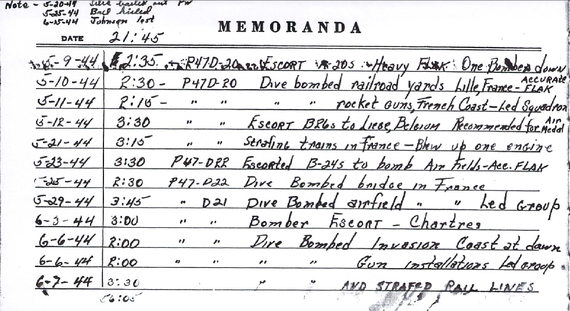 Note - 5-20-44
5-25-44 Bud Killed
6-15-44 Johnson lost
MEMORANDA
DATE 21:45
5-9-44 2:35 - P47D-20 Escort - Heavy Flak. One Bomber down
5-10-44 2:30 - P47D-20 Dive bombed railroad yards Lille, France - ACCURATE FLAK
5-11-44 2:15 - " " " " rocket guns, French Coast - Led Squadron
5-12-44 3:30 " " Escort B26s to Liege, Belgium Recommended for Air Medal
5-21-44 3:15 " " Strafing trains in France - Blew up one engine
5-23-44 3:30 P47-D22 Escorted B-24s to bomb Air Fields - Acc. FLAK
5-25-44 2:30 P47-D22 Dive Bombed bridge in France
5-29-44 3:45 " D21 Dive Bombed airfield " " Led Group
6-3-44 3:00 " " Bomber Escort - Chartres
6-6-44 2:00 " " Dive Bombed Invasion Coast at dawn
6-6-44 2:00 " " " " Gun Installations Led group
6-7-44 3:30 " " AND STRAFED RAIL LINES